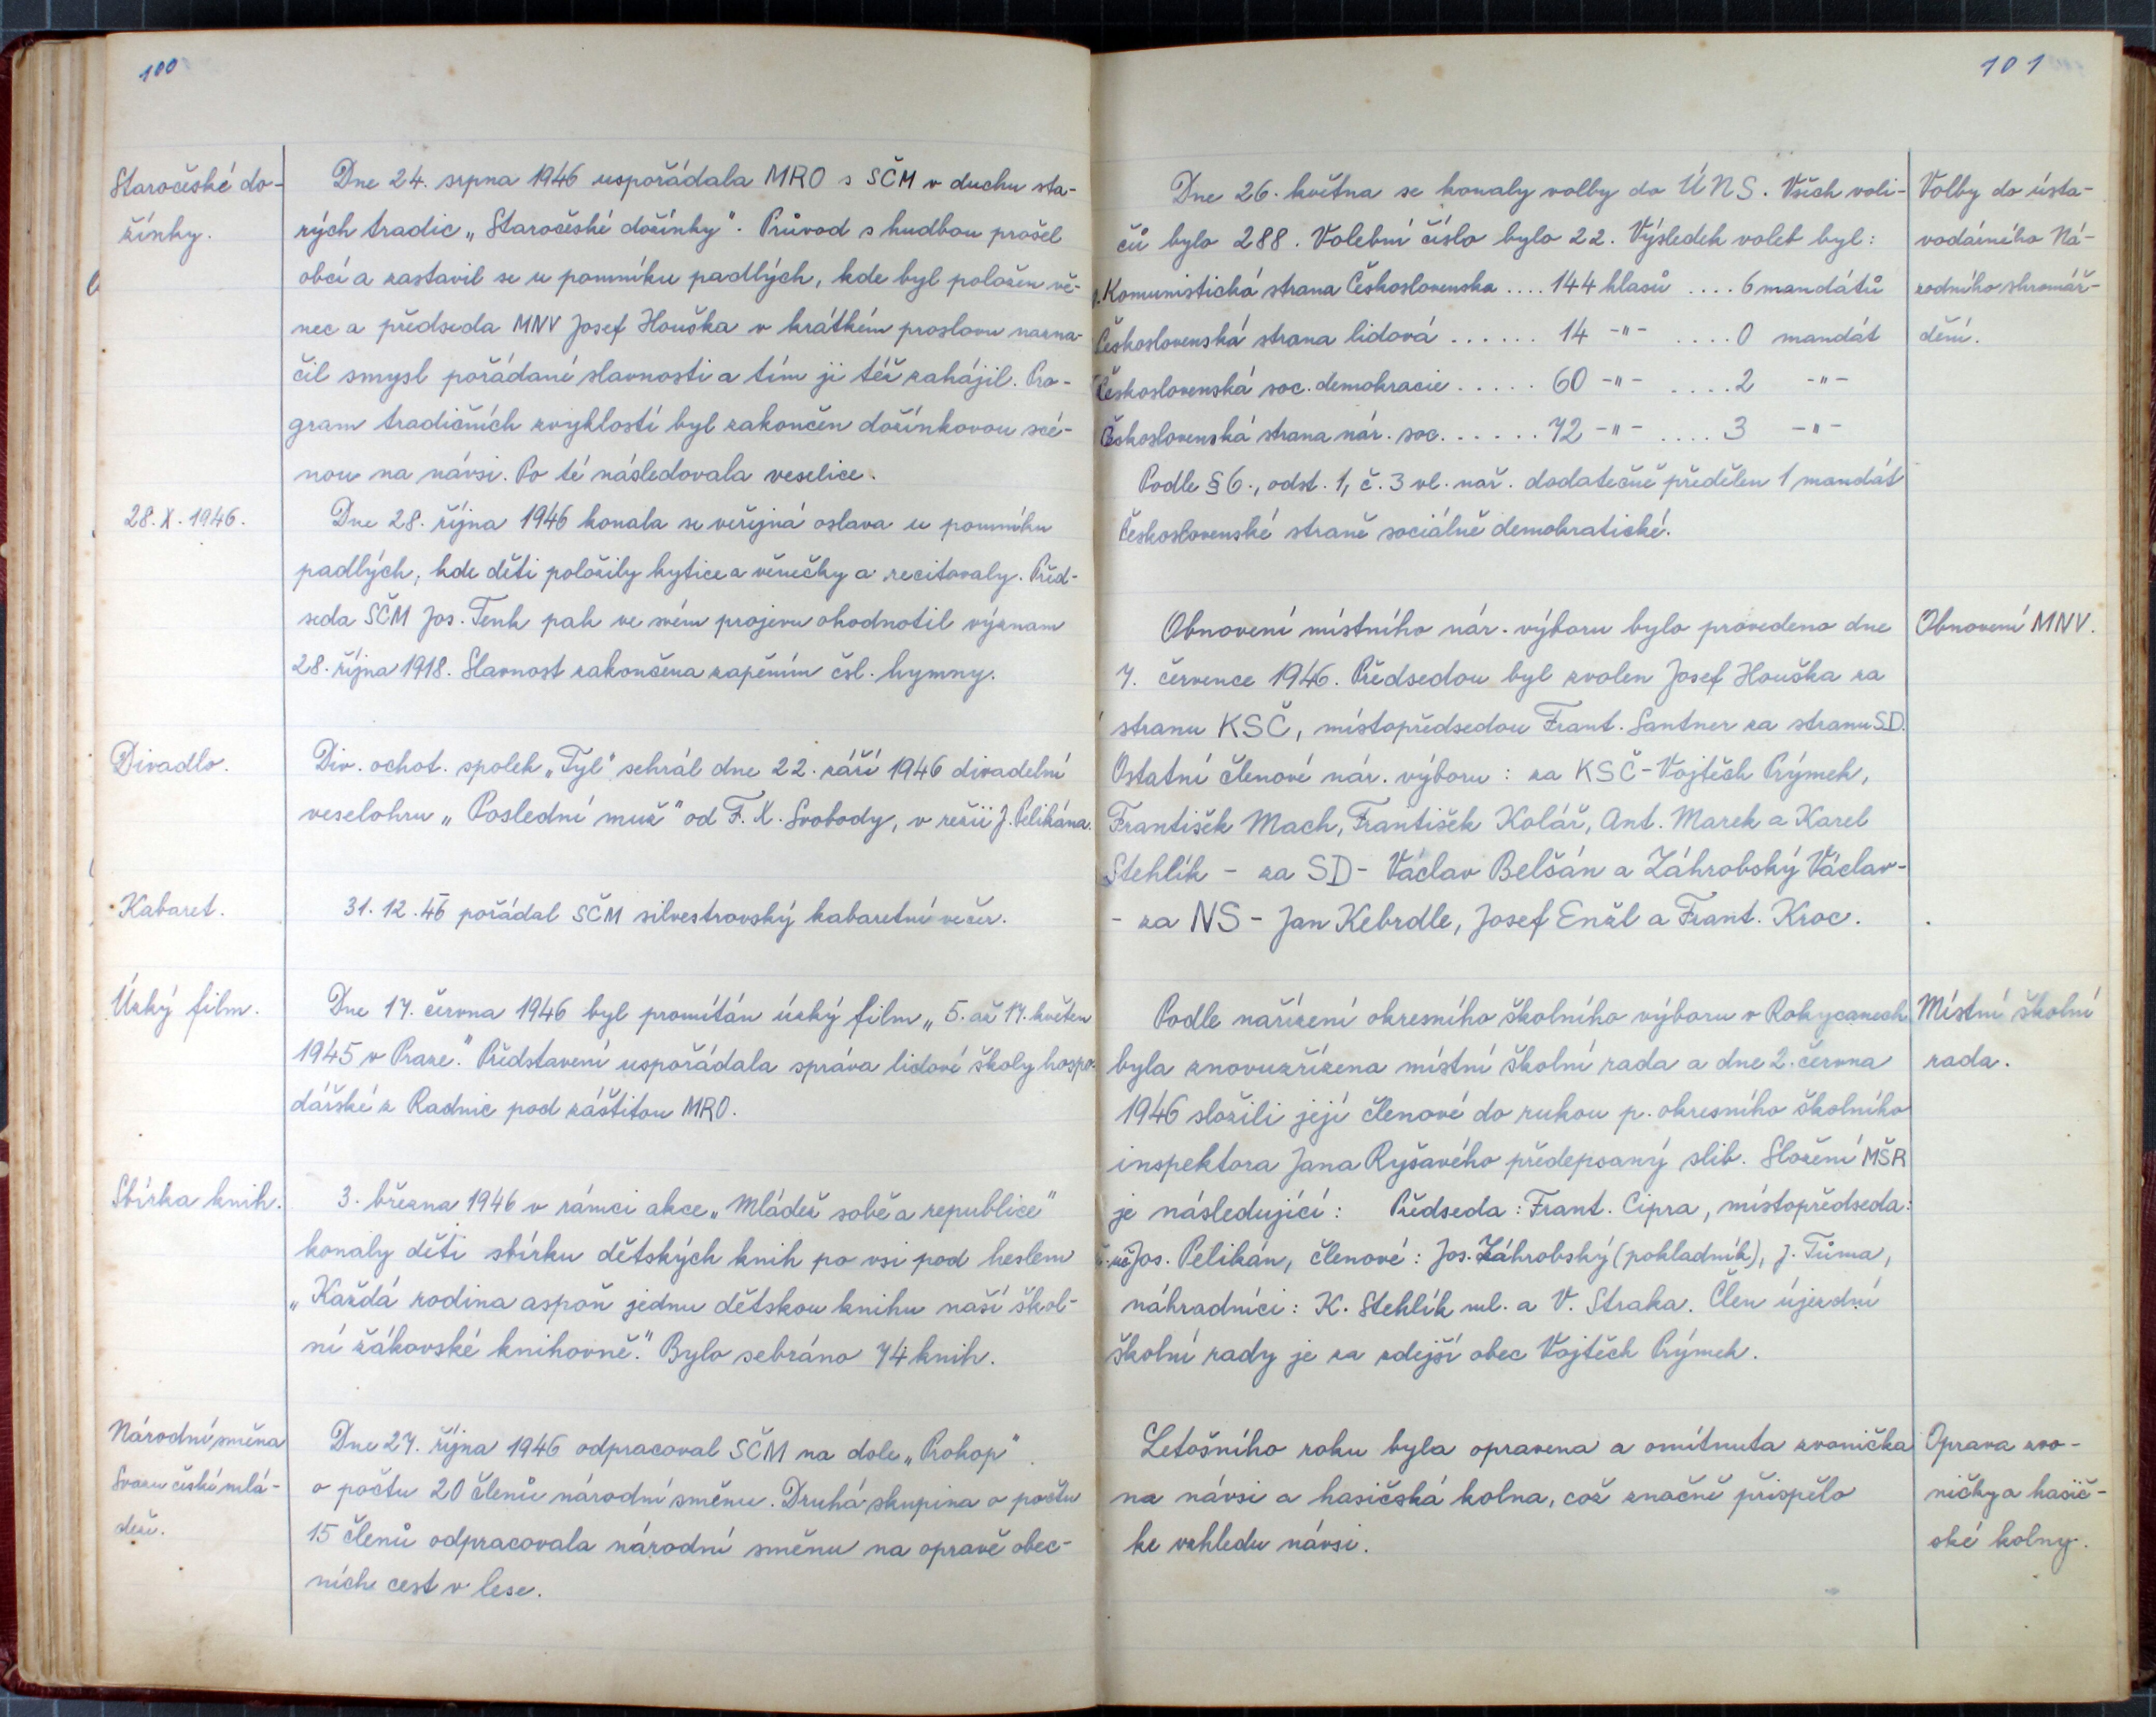 100
Staročeské do-
žínky.
Dne 24. srpna 1946 uspořádala MRO s SČM v duchu sta-
rých tradic „Staročeské dožínky“. Průvod s hudbou prošel
obcí a zastavil se u pomníku padlých, kde byl položen vě-
nec a předseda MNV Josef Houška v krátkém proslovu nazna-
čil smysl pořádané slavnosti a tím ji též zahájil. Pro-
gram tradičních zvyklostí byl zakončen dožínkovou scé-
nou na návsi. Po té následovala veselice.
28. X. 1946.
Dne 28. října 1946 konala se veřejná oslava u pomníku
padlých, kde děti položily kytice a věnečky a recitovaly. Před-
seda SČM Jos. Tenk pak ve svém projevu ohodnotil význam
28. října 1918. Slavnost zakončena zapěním čsl. hymny.
Divadlo.
Div. ochot. spolek „Tyl“ sehrál dne 22. září 1946 divadelní
veselohru „Poslední muž“ od F. X. Svobody, v režii J. Pelikána.
Kabaret.
31. 12. 46 pořádal SČM silvestrovský kabaretní večer.
Úzký film.
Dne 17. června 1946 byl promítán úzký film „5. až 17. květen
1945 v Praze.“ Představení uspořádala správa lidové školy hospo-
dářské z Radnic pod záštitou MRO.
Sbírka knih.
3. března 1946 v rámci akce „Mládež sobě a republice“
konaly děti sbírku dětských knih po vsi pod heslem
„Každá rodina aspoň jednu dětskou knihu naší škol-
ní žákovské knihovně.“ Bylo sebráno 74 knih.
Národní směna
Svazu české mlá-
deže.
Dne 27. října 1946 odpracoval SČM na dole „Prokop“
o počtu 20 členů národní směnu. Druhá skupina o počtu
15 členů odpracovala národní směnu na opravě obec-
ních cest v lese.
101
Dne 26. května se konaly volby do ÚNS. Všech voli-
čů bylo 288. Volební číslo bylo 22. Výsledek voleb byl:
Komunistická strana Československa .... 144 hlasů .... 6 mandátů
Československá strana lidová ...... 14 -"- .... 0 mandát
Československá soc. demokracie ..... 60 -"- .... 2 -"-
Československá strana nár. soc. ..... 72 -"- .... 3 -"-
Podle § 6., odst. 1, č. 3 vl. nař. dodatečně přidělen 1 mandát
Československé straně sociálně demokratické.
Volby do ústa-
vodárného Ná-
rodního shromáž-
dění.
Obnovení místního nár. výboru bylo provedeno dne
7. července 1946. Předsedou byl zvolen Josef Houška za
stranu KSČ, místopředsedou Frant. Santner za stranu SD.
Ostatní členové nár. výboru: za KSČ - Vojtěch Prýmek,
František Mach, František Kolář, Ant. Marek a Karel
Stehlík - za SD - Václav Belšán a Záhrobský Václav -
- za NS - Jan Kebrdle, Josef Enžl a Frant. Kroc.
Obnovení MNV.
Podle nařízení okresního školního výboru v Rokycanech
byla znovuzřízena místní školní rada a dne 2. června
1946 složili její členové do rukou p. okresního školního
inspektora Jana Ryšavého předepsaný slib. Složení MŠR
je následující: Předseda: Frant. Cipra, místopředseda:
Jos. Pelikán, členové: Jos. Záhrobský (pokladník), J. Tůma,
náhradníci: K. Stehlík ml. a V. Straka. Člen újezdní
školní rady je za zdejší obec Vojtěch Prýmek.
Místní školní
rada.
Letošního roku byla opravena a omítnuta zvonička
na návsi a hasičská kolna, což značně přispělo
ke vzhledu návsi.
Oprava zvo-
ničky a hasič-
ské kolny.